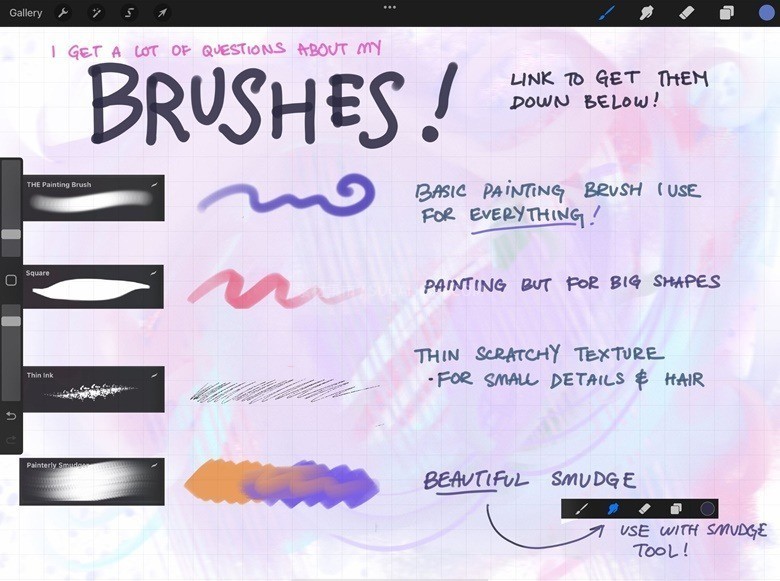 Gallery
I GET A LOT OF QUESTIONS ABOUT MY
BRUSHES!
LINK TO GET THEM
DOWN BELOW!
THE Painting Brush
BASIC PAINTING BRUSH I USE
FOR EVERYTHING!
Square
PAINTING BUT FOR BIG SHAPES
Thin Ink
THIN SCRATCHY TEXTURE
·FOR SMALL DETAILS & HAIR
Painterly Smudge
BEAUTIFUL SMUDGE
USE WITH SMUDGE
TOOL!